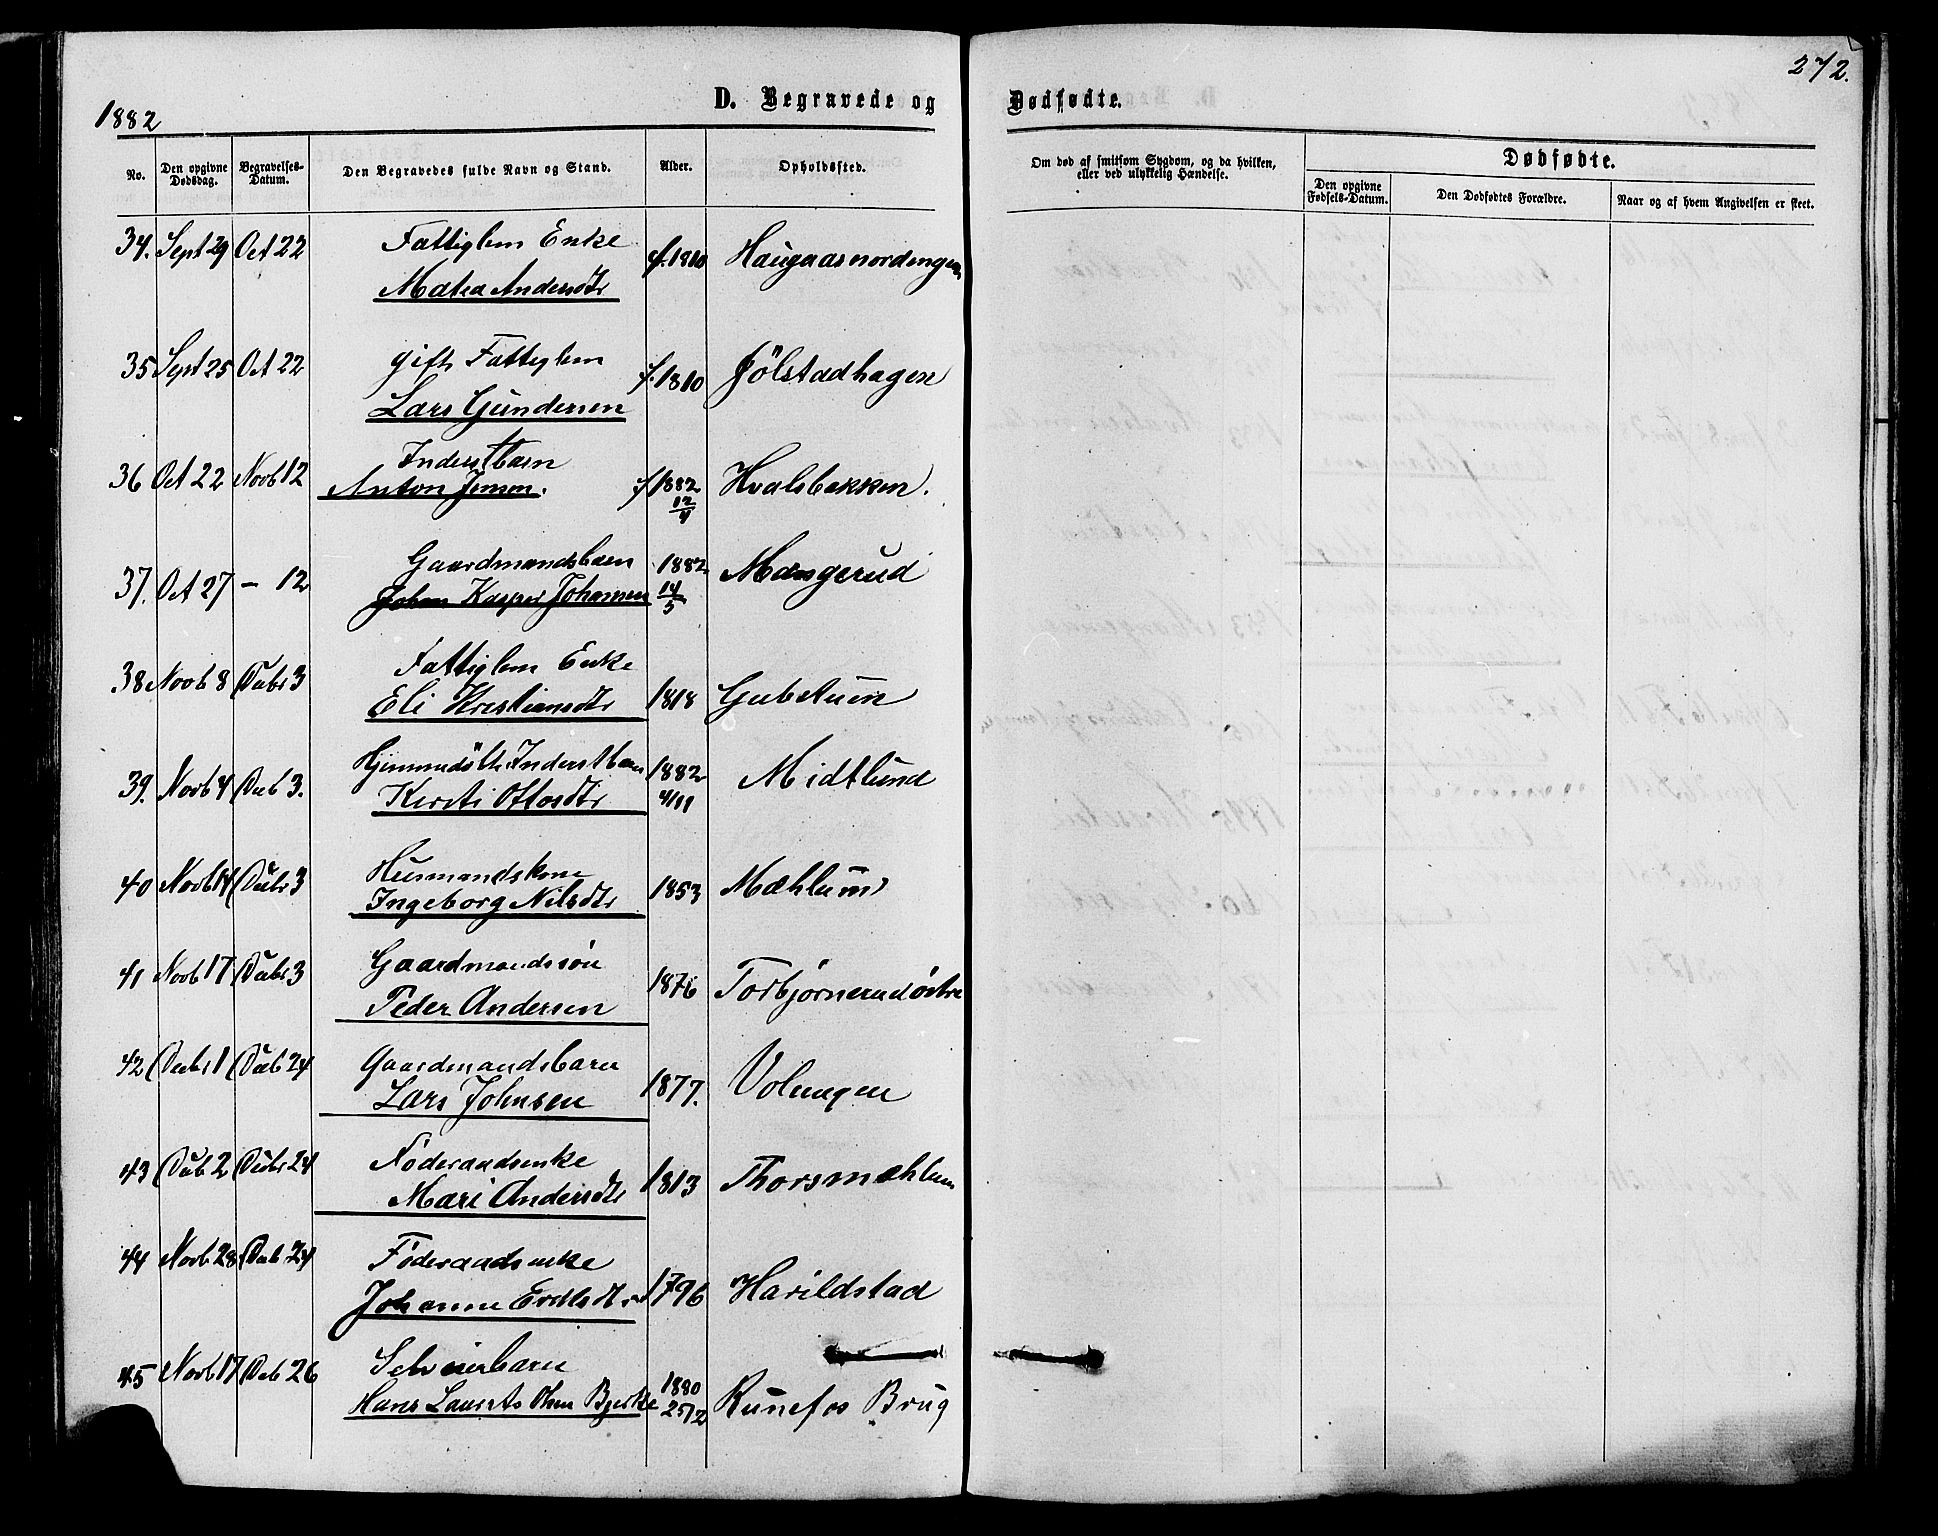 272.
1882
D. Begravede og Dødfødte.
No. Den opgivne Dødsdag. Begravelses-Datum. Den Begravedes fulde Navn og Stand. Alder. Opholdssted. Om død af smitsom Sygdom, og da hvilken, eller ved ulykkelig Hændelse. Dødfødte. Den opgivne Fødsels-Datum. Den Dødfødtes Forældre. Naar og af hvem Angivelsen er skeet.
34. Sept 29 Oct 22 Fattiglem Enke f. 1810 Haugaasnordengen
Mathea Andersdtr
35 Sept 25 Oct 22 gift Fattiglem f. 1810 Jölstadhagen
Lars Gundersen
36 Oct 22 Novb 12 Inderstbarn f 1882 12/4 Hvalsbakken.
Anton Jensen.
37. Oct 27 - 12 Gaardmandsbarn 1882 14/5 Mangerud
Johan Kasper Johansen
38 Novb 8 Debr 3 Fattiglem Enke 1818 Gubstuen
Eli Kristiansdtr
39. Novb 4 Deb 3. Hjemmedöbt Inderstbarn 1882 4/11 Midtlund
Kersti Ottosdtr
40 Novb 14 Debr 3 Husmandskone 1853 Mæhlum
Ingeborg Nilsdtr
41 Novb 17 Debr 3 Gaardmandssön 1876 Torbjørnerud østre
Peder Andersen
42 Debr 1 Deb 24 Gaardmandsbarn 1877. Volungen
Lars Johnsen
43 Deb 2 Debr 24 Föderaadsenke 1813 Thorsmæhlum
Mari Andersdtr
44 Novb. 28 Deb 24 Föderaadsenke 1796 Harildstad
Johanne
45 Novb 17 Deb 26 Selveierbarn 1880 25/2 Runefos Brug
Hans Laurits Olsen Bjerke